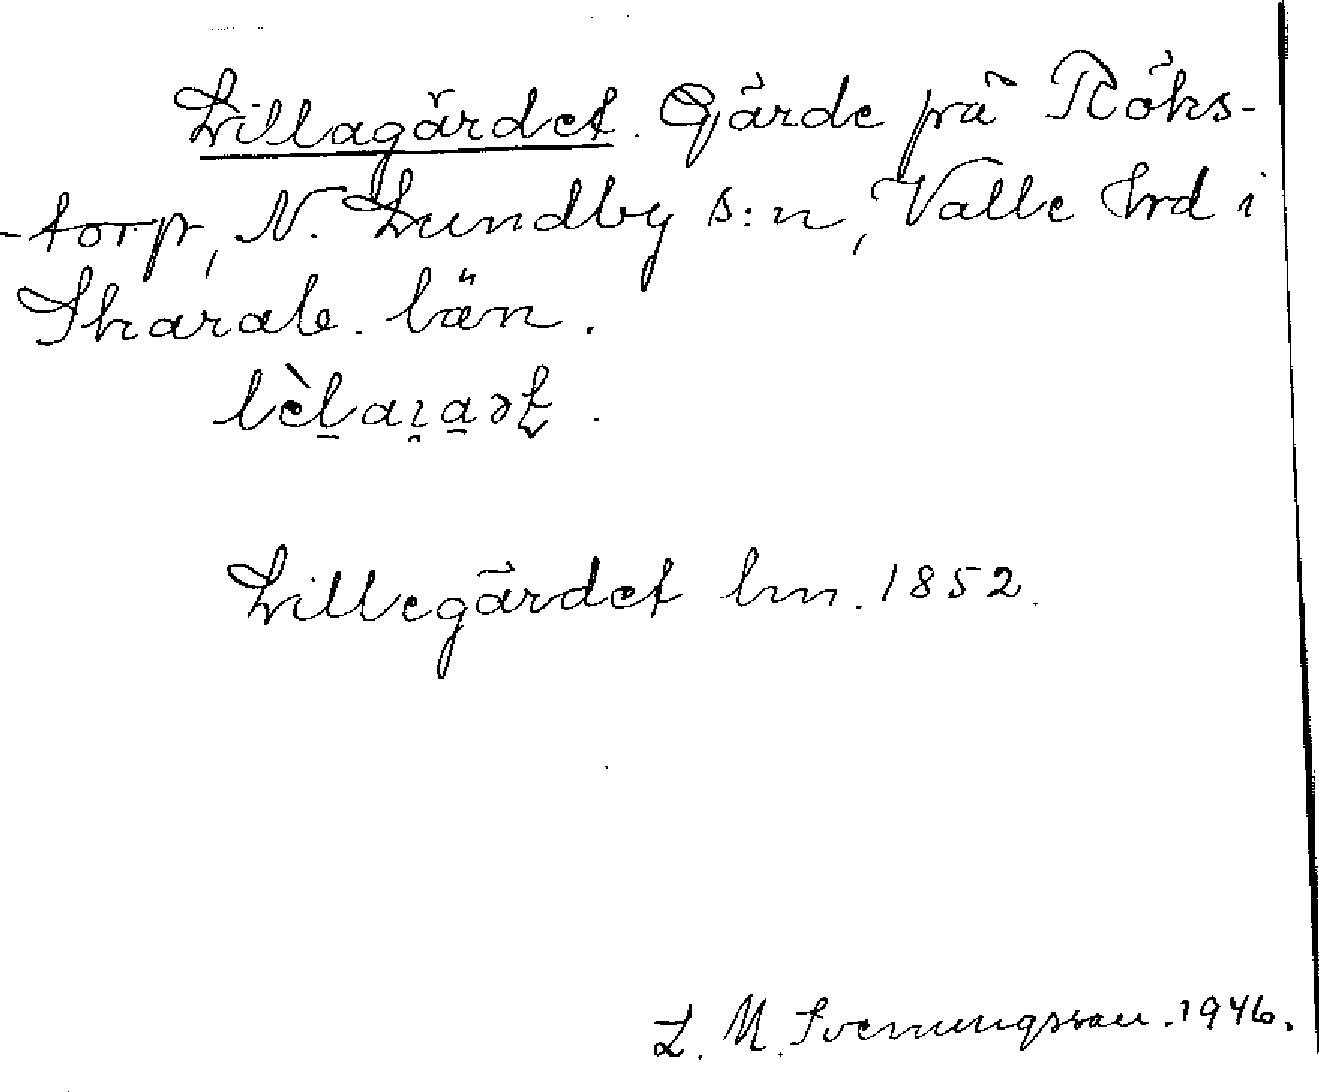 Lillagärdet. Gärde på Röks-
-torp, N. Lundby s:n, Valle hrd i
Skarab. län.
Lillegärdet hm. 1852.
L. M. Svenungsson. 1946.